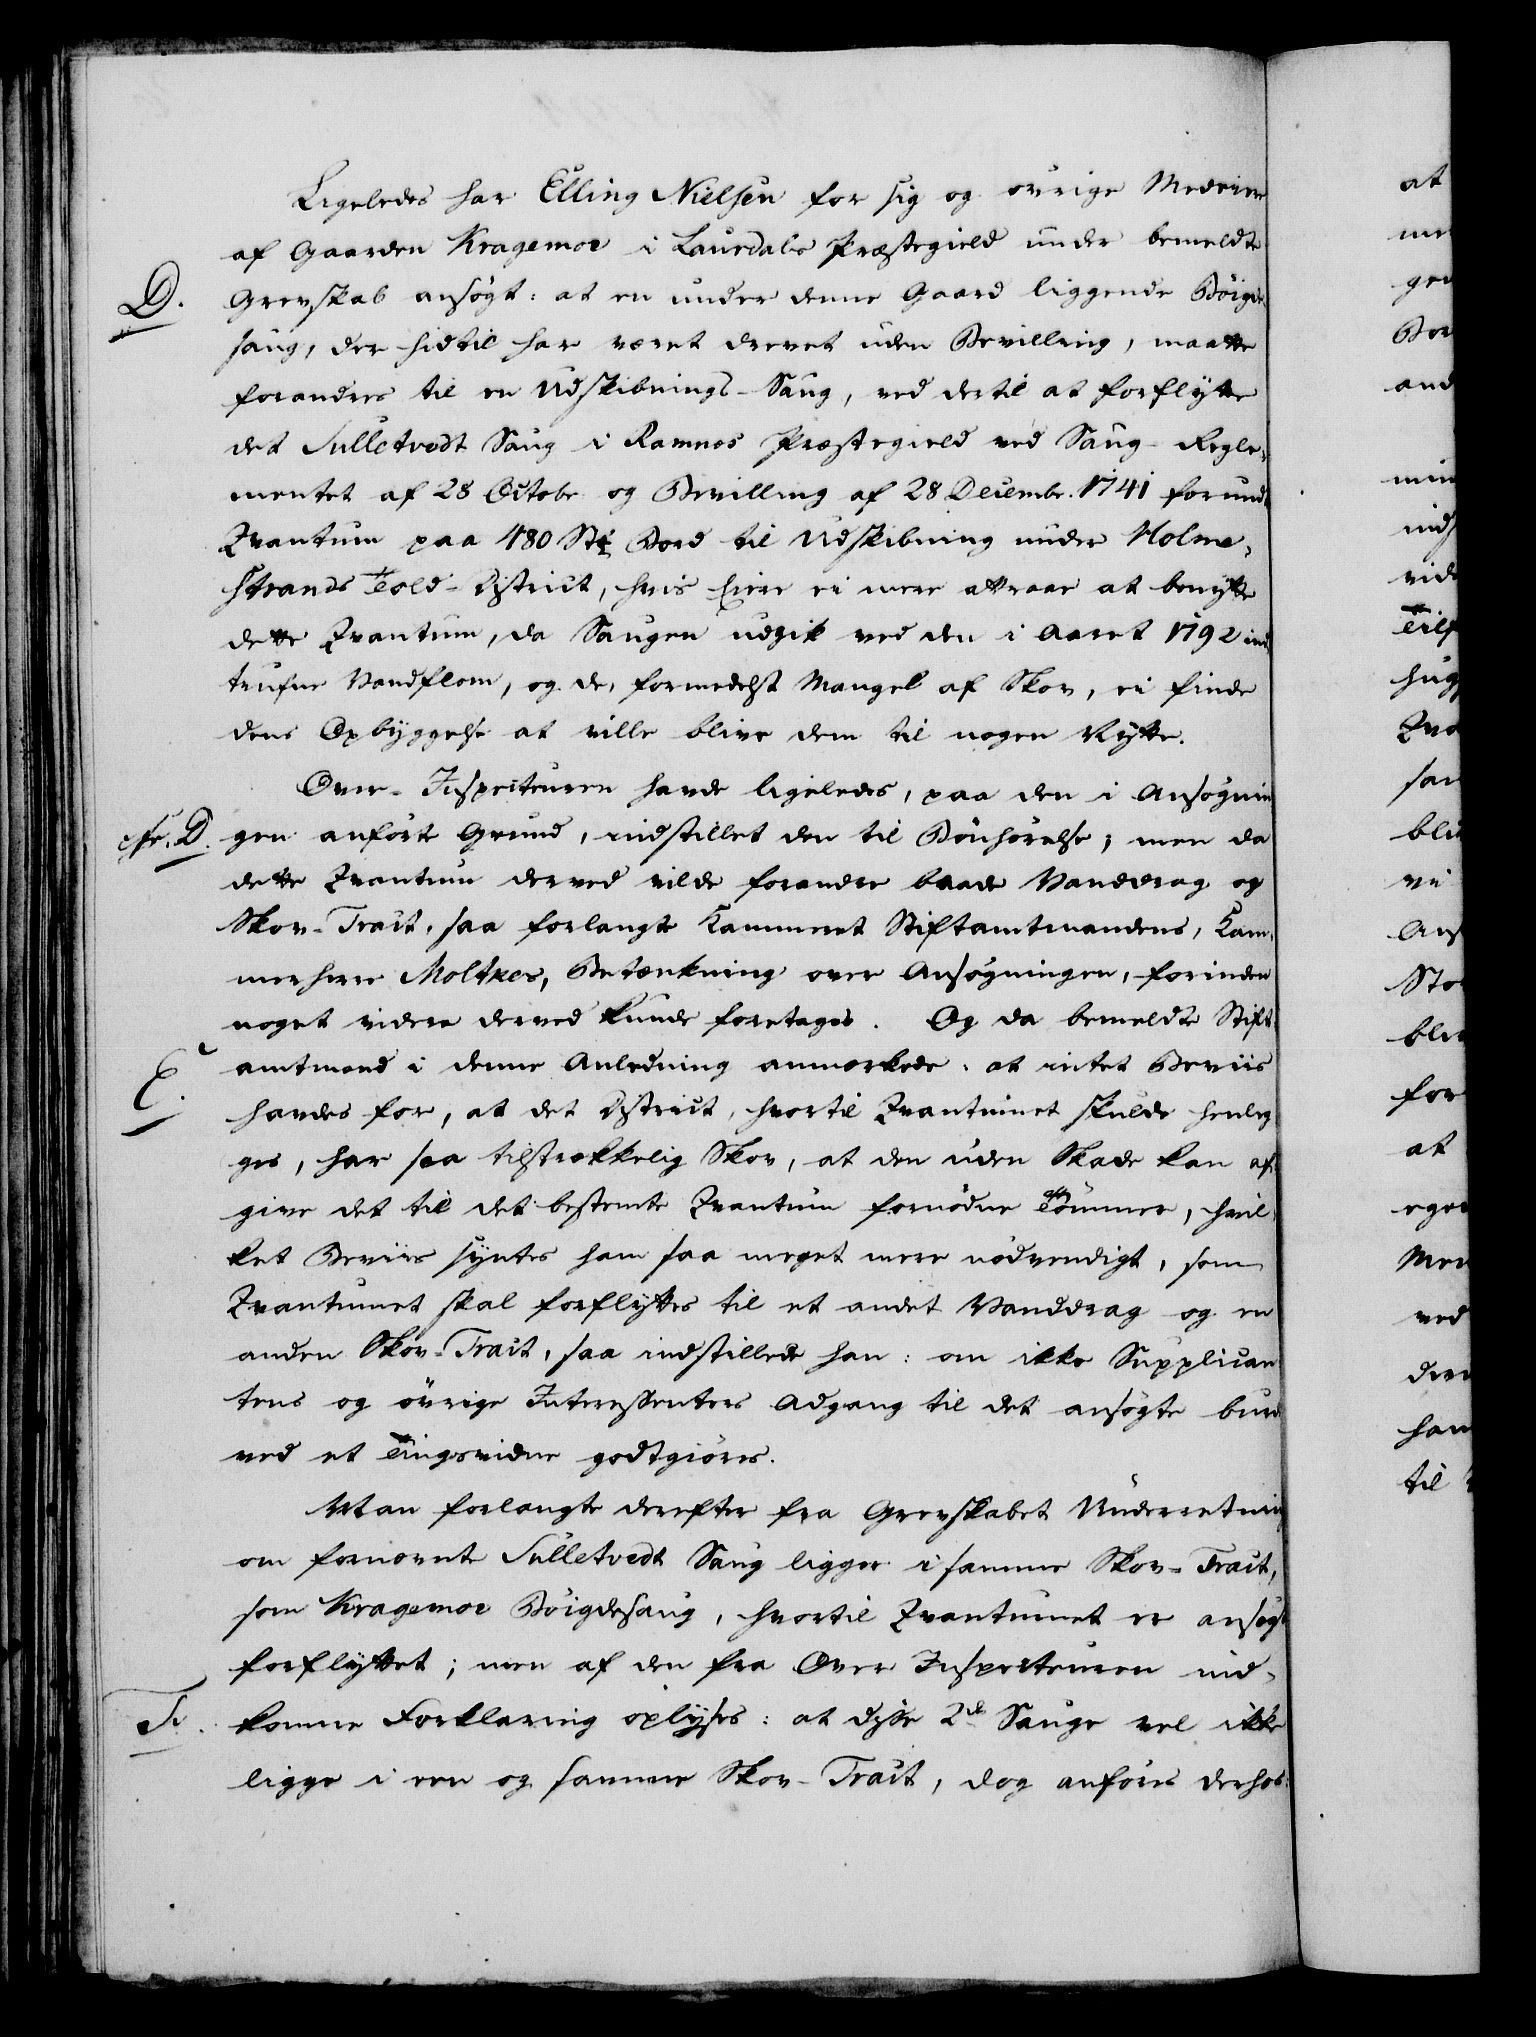 Ligeledes har Elling Nielsen for sig og övrige Medeiere
af Gaarden Kragemoe i Laurdals Præstegield under bemeldte
D. Grevskab ansögt: at en under denne Gaard liggende Böigde
saug, der hidtil har været drevet uden Bevilling, maatte
forandres til en Udskibnings-Saug, ved dertil at forflytte
det Sulletvedt Saug i Ramnes Præstegield ved Saug-Regle,
mentet af 28 Octobr og Bevilling af 28 Decembr. 1741 forundte
Qvantum paa 480 Stk Bord til Udskibning under Holme,
strands Told-District, hvis Eiere ei mere attraae at benytte
dette Qvantum, da Saugen udgik ved den i Aaret 1792 ind
trufne Vandflom, og de, formedelst Mangel af Skov, ei finde
dens Opbyggelse at ville blive dem til nogen Nytte.
Over-Inspecteuren havde ligeledes, paa den i Ansögnin
cfr. D. gen anförte Grund, indstillet den til Bönhörelse; men da
dette Qvantum derved vilde forandre baade Vanddrag og
Skov-Tract, saa forlangte Kammeret Stiftamtmandens, Kam,
merherre Moltkes, Betænkning over Ansögningen, forinden
noget videre derved kunde foretages. Og da bemeldte Stift,
E. amtmand i denne Anledning anmærkede: at intet Beviis
havdes for, at det District, hvortil Qvantumet skulde henlæg
ges, har saa tilstrækkelig Skov, at den uden Skade kan af,
give det til det bestemte Qvantum fornödne Tömmer, hvil,
ket Beviis syntes ham saa meget mere nödvendigt, som
Qvantumet skal forflyttes til et andet Vanddrag og en
anden Skov-Tract, saa indstillede han: om ikke Supplican
tens og övrige Interessenters Adgang til det ansögte burde
ved et Tingsvidne godtgiöres.
Man forlangte derefter fra Grevskabet Underretning
om fornævnte Sulletvedt Saug ligger i samme Skov-Tract,
som Kragemoe Böigdesaug, hvortil Qvantumet er ansögt
forflyttet; men af den fra Over Inspecteuren ind,
F. komne Forklaring oplyses: at disse 2de Sauge vel ikke
ligge i een og samme Skov-Tract, dog anföres derhos: